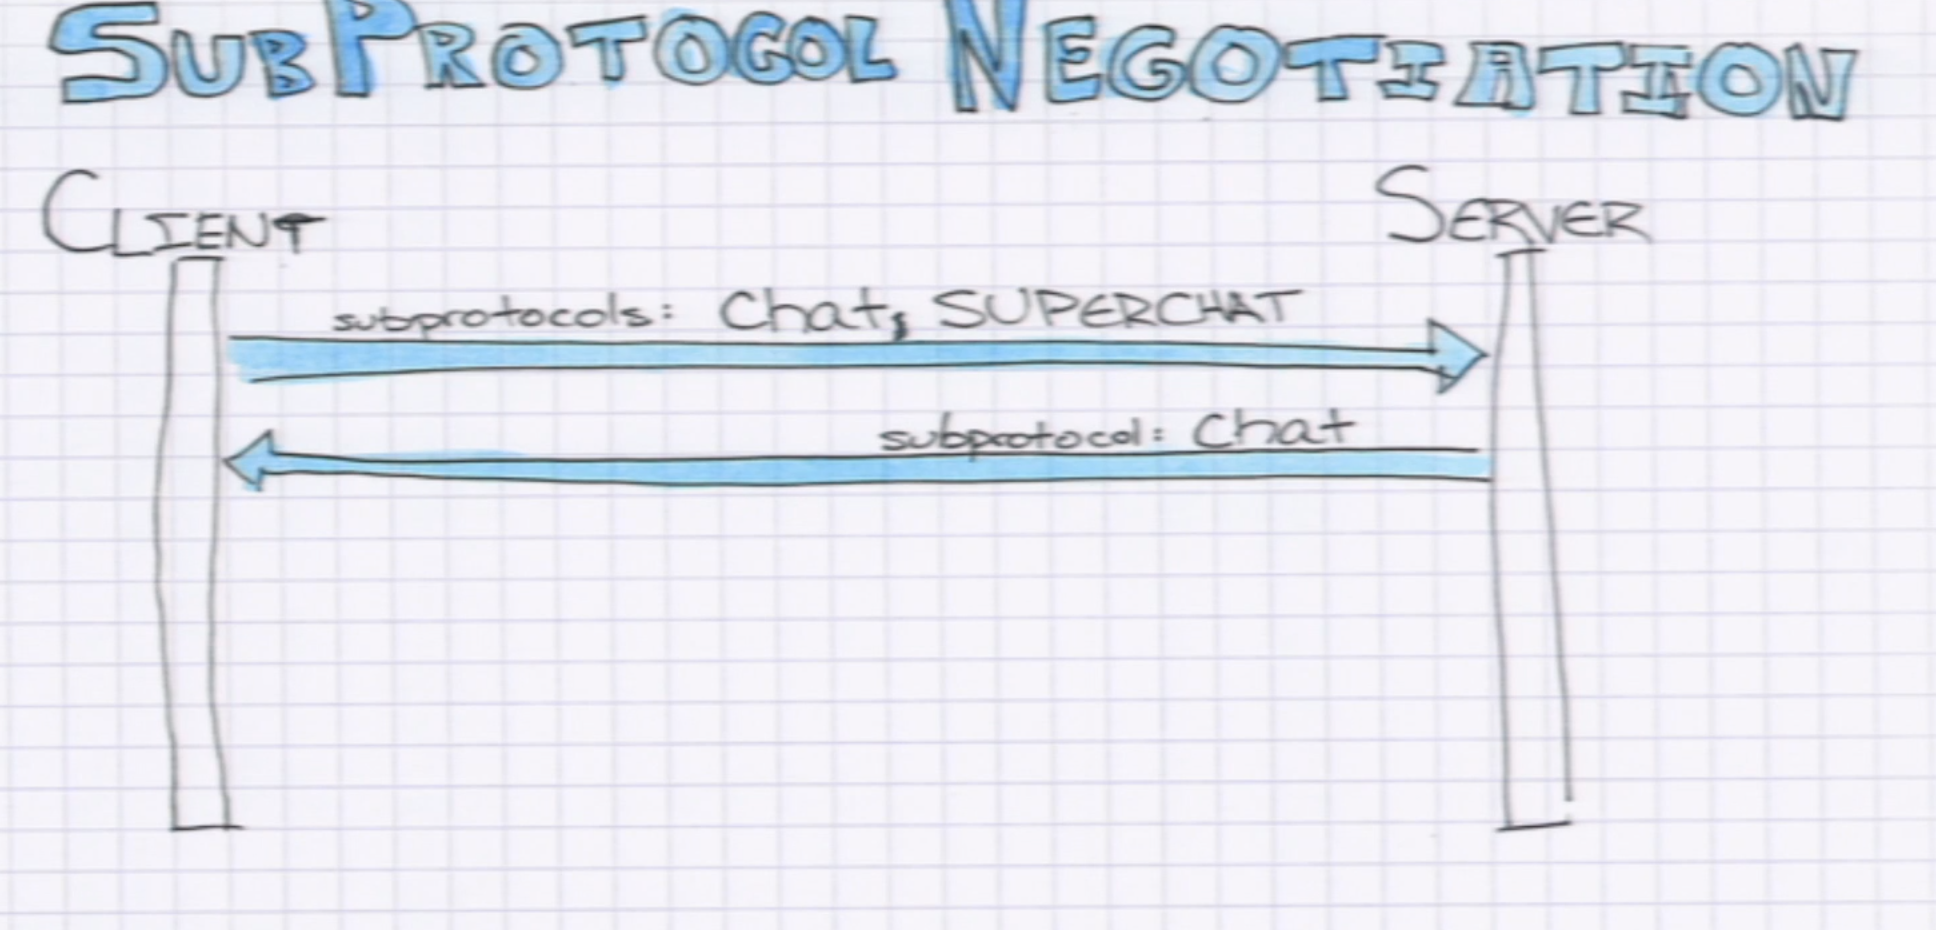 SUBPROTOCOL NEGOTIATION
CLIENT
SERVER
subprotocols: Chat, SUPERCHAT
subprotocol: Chat